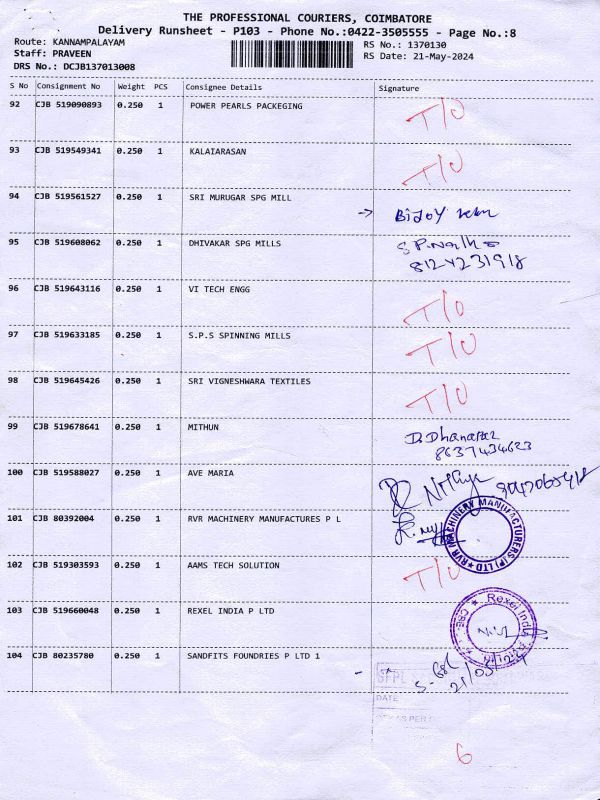 THE PROFESSIONAL COURIERS, COIMBATORE
Delivery Runsheet - P103 - Phone No.:0422-3505555 - Page No.:8
Route: KANNAMPALAYAM
RS No.: 1370130
Staff: PRAVEEN
RS Date: 21-May-2024
DRS No.: DCJB137013008
S No Consignment No Weight PCS Consignee Details Signature
92 CJB 519090893 0.250 1 POWER PEARLS PACKEGING T/O
93 CJB 519549341 0.250 1 KALAIARASAN T/O
94 CJB 519561527 0.250 1 SRI MURUGAR SPG MILL
→ Bijoy
95 CJB 519608062 0.250 1 DHIVAKAR SPG MILLS
8124231918
96 CJB 519643116 0.250 1 VI TECH ENGG T/O
97 CJB 519633185 0.250 1 S.P.S SPINNING MILLS T/O
98 CJB 519645426 0.250 1 SRI VIGNESHWARA TEXTILES T/O
99 CJB 519678641 0.250 1 MITHUN D. Dhanapal
8637434623
100 CJB 519588027 0.250 1 AVE MARIA Nithya
101 CJB 80392004 0.250 1 RVR MACHINERY MANUFACTURES P L
RVR MACHINERY MANUFACTURERS (P) LTD
102 CJB 519303593 0.250 1 AAMS TECH SOLUTION T/O
103 CJB 519660048 0.250 1 REXEL INDIA P LTD
Rexel India
104 CJB 80235780 0.250 1 SANDFITS FOUNDRIES P LTD 1
21/05/24
SFPL
DATE
6